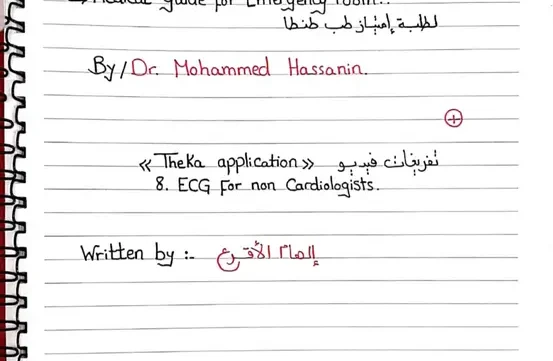 Medical guide for Emergency room..
لطلبة إمتياز طب طنطا
By/Dr. Mohammed Hassanin.
+
« Theka application » تفريغات فيديو
8. ECG For non Cardiologists.
Written by :- إلهام الأقرع